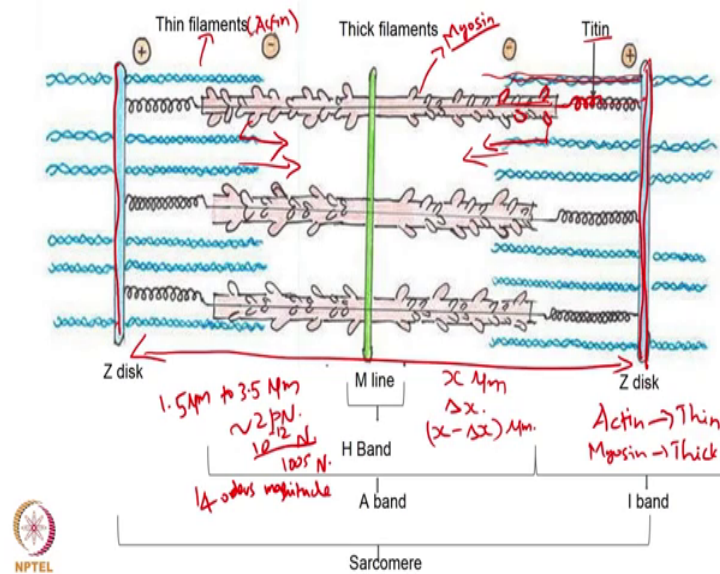 Thin filaments (Actin)
Thick filaments
Myosin
Titin
+
-
-
+
Z disk
M line
Z disk
1.5 μm to 3.5 μm
~2 pN.
10^12 N.
100s N.
14 orders magnitude
x μm
Δx.
(x-Δx) μm.
Actin → Thin
Myosin → Thick
H Band
A band
I band
Sarcomere
NPTEL